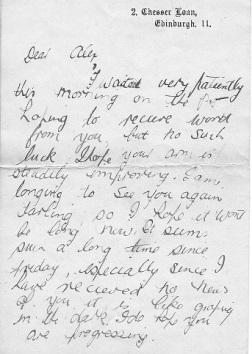 2, Chesser Loan,
Edinburgh, 11.
Dear Alex,
I waited very patiently
this morning on the
hoping to receive word
from you, but no such
luck. I hope your arm is
steadily improving. I am
longing to see you again
darling so I hope it wont
be long now. It seems
such a long time since
friday, especially since I
have recieved no news
of you it is like groping
in the dark. I do hope you
are progressing.